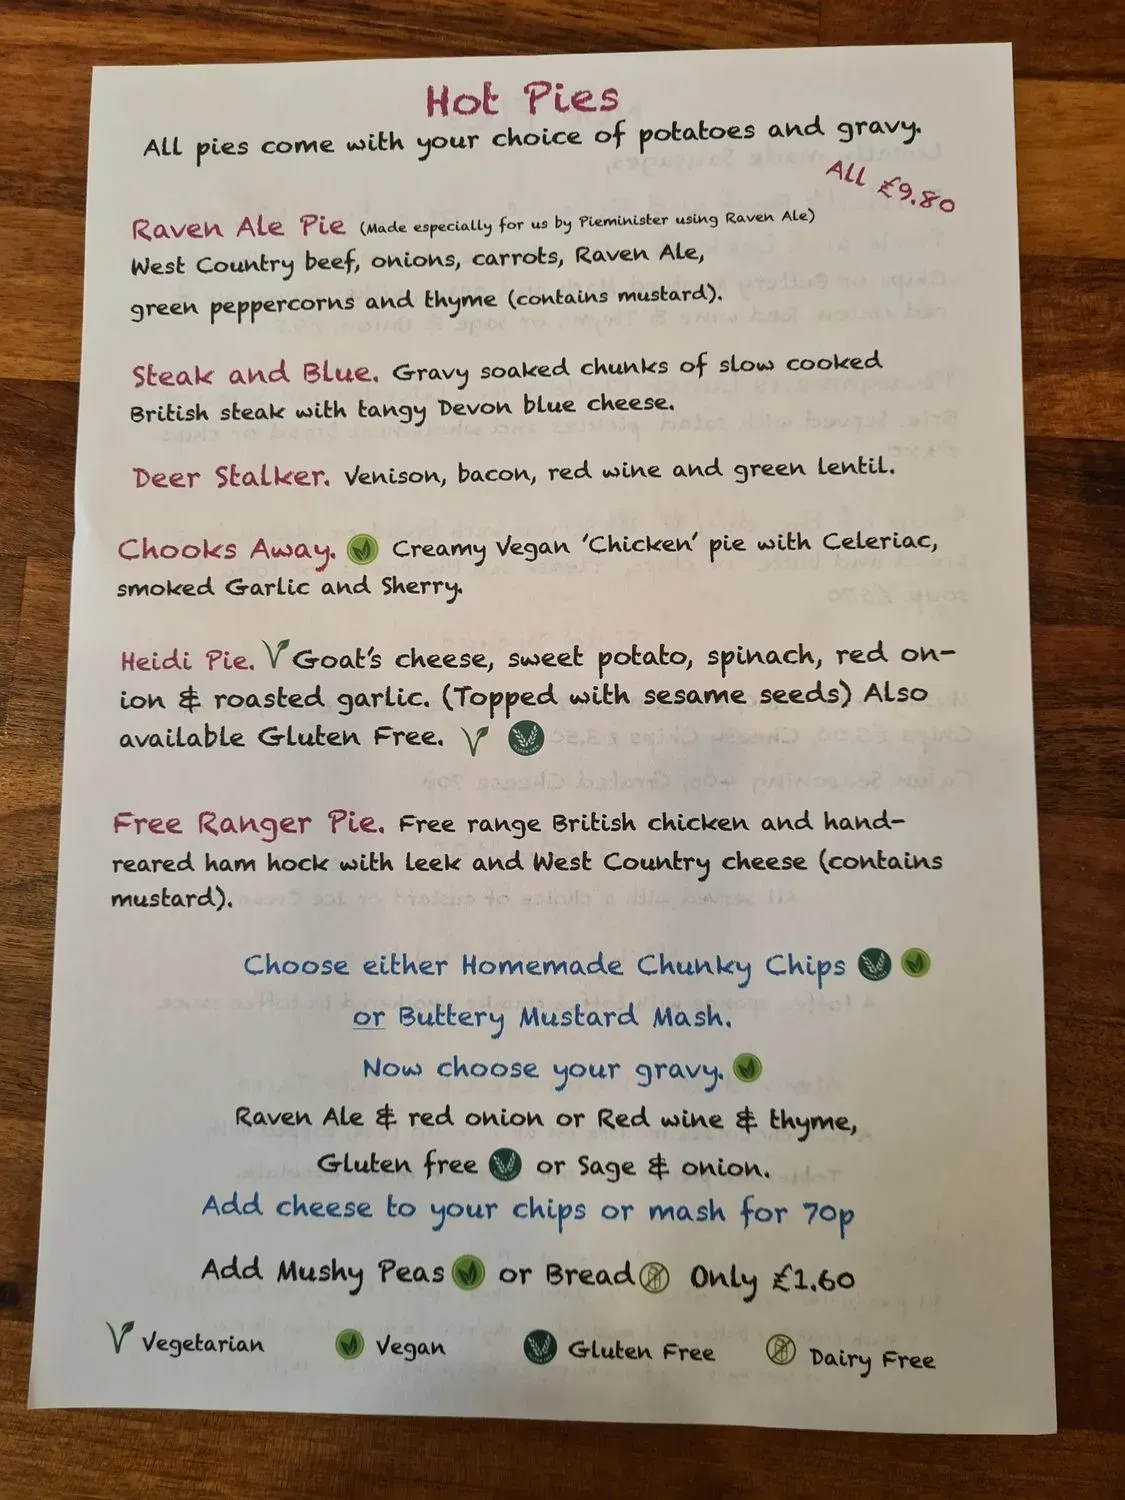 Hot Pies
All pies come with your choice of potatoes and gravy.
All £9.80
Raven Ale Pie (Made especially for us by Pieminister using Raven Ale)
West Country beef, onions, carrots, Raven Ale,
green peppercorns and thyme (contains mustard).
Steak and Blue. Gravy soaked chunks of slow cooked
British steak with tangy Devon blue cheese.
Deer Stalker. Venison, bacon, red wine and green lentil.
Chooks Away. Creamy Vegan 'Chicken' pie with Celeriac,
smoked Garlic and Sherry.
Heidi Pie. Goat's cheese, sweet potato, spinach, red on-
ion & roasted garlic. (Topped with sesame seeds) Also
available Gluten Free.
Free Ranger Pie. Free range British chicken and hand-
reared ham hock with leek and West Country cheese (contains
mustard).
Choose either Homemade Chunky Chips
or Buttery Mustard Mash.
Now choose your gravy.
Raven Ale & red onion or Red wine & thyme,
Gluten free or Sage & onion.
Add cheese to your chips or mash for 70p
Add Mushy Peas or Bread Only £1.60
Vegetarian Vegan Gluten Free Dairy Free